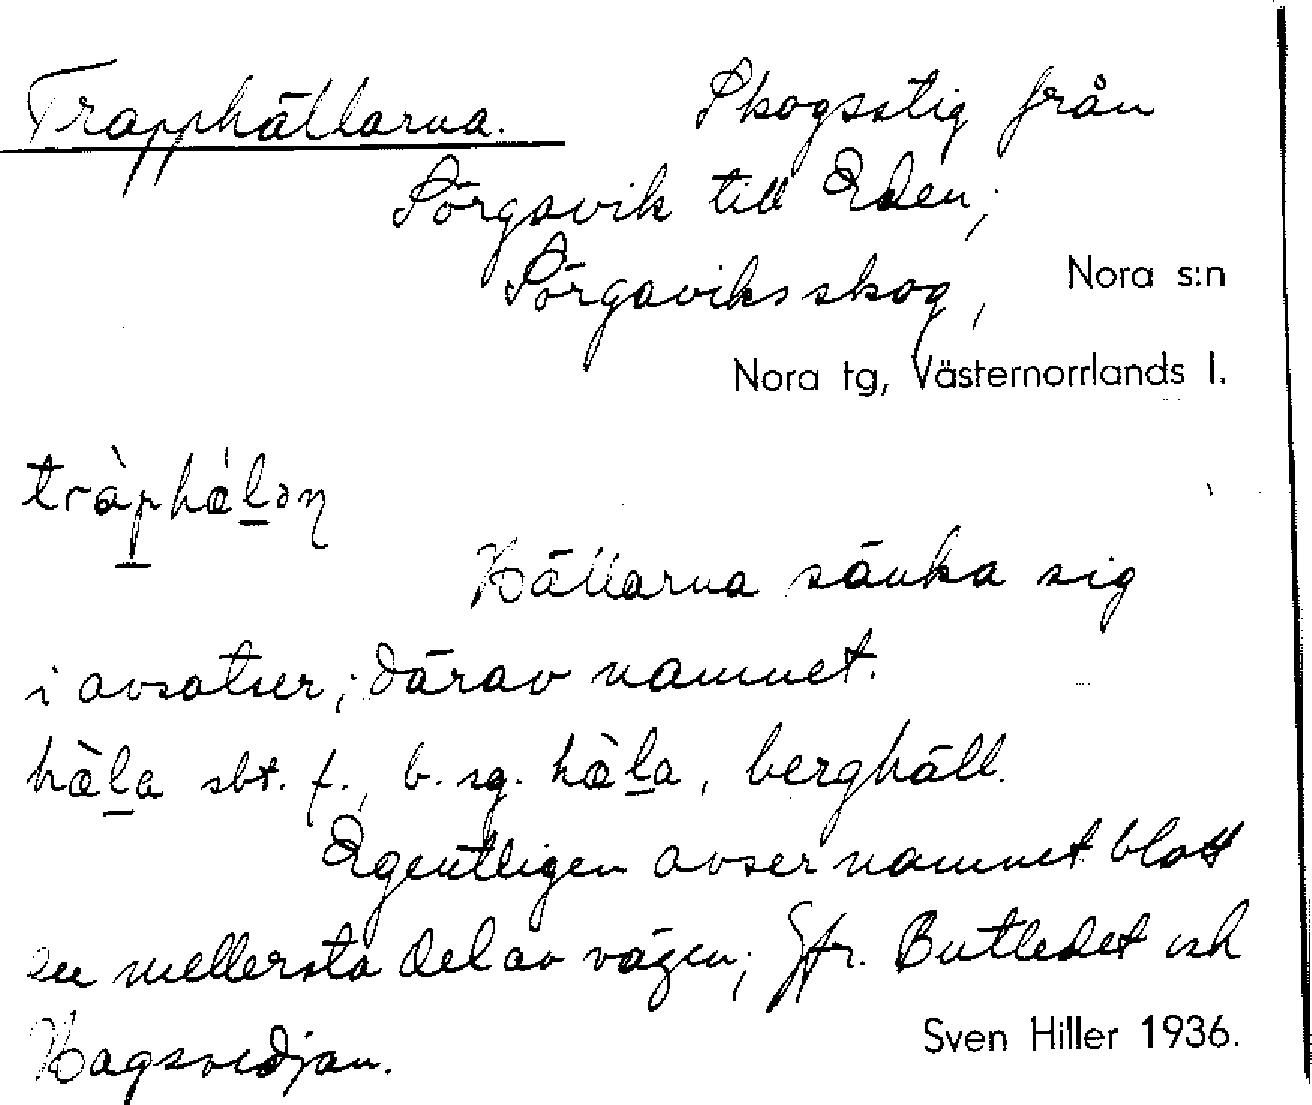 Trapphällarna. Skogsstig från
Sörgavik till Eden;
Sörgaviksskog,
Nora s:n
Nora tg, Västernorrlands l.
tràphǽlən
Hällarna sänka sig
i avsatser; därav namnet.
hæ̀la sbt. f., b. sg. hæ̀la, berghäll.
Egentligen avser namnet blott
en mellersta del av vägen; Jfr. Butledet och
Hagsvedjan.
Sven Hiller 1936.